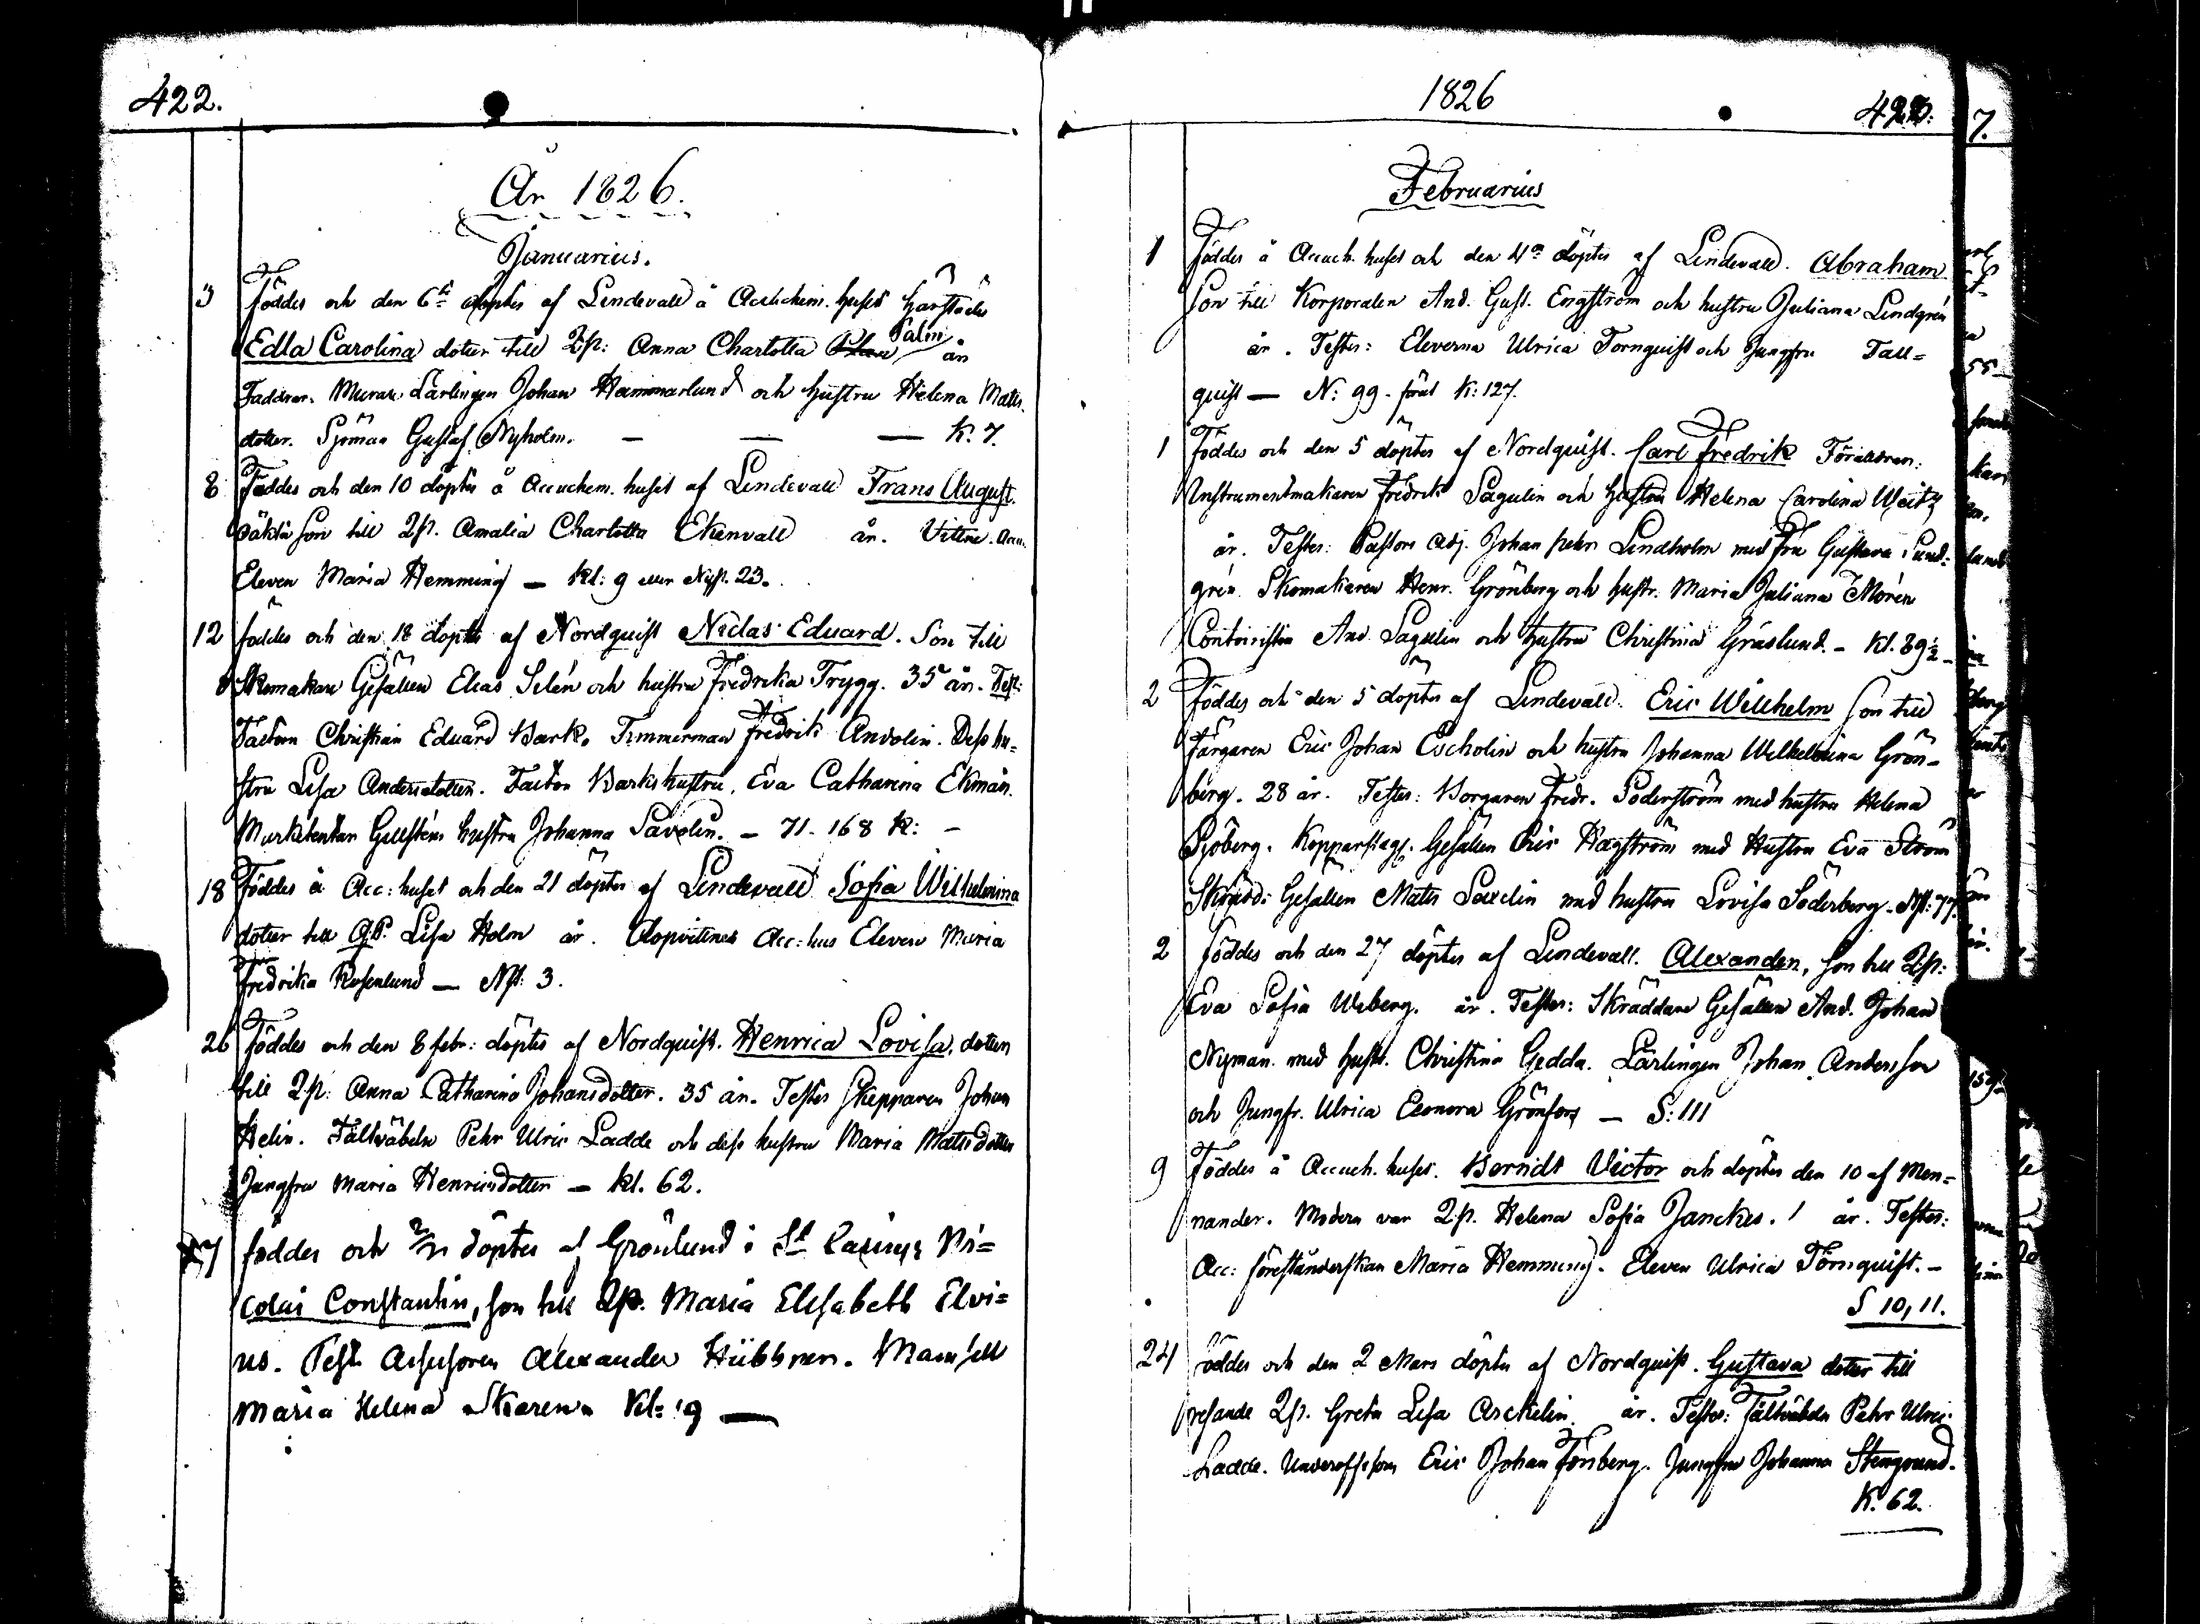 422.
År 1826.
Januarius.
3 Föddes och den 6te döptes af Lindevall å Accuchem. huset härstädes
Edla Carolina dotter till Qp: Anna Charlotta Palm år
Faddrar. Murare Lärlingen Johan Hammarlund och hustru Helena Matts
dotter. Sjöman Gustaf Nyholm. — — — K. 7.
8 Föddes och den 10 döptes å Accuchem. huset af Lindevall Frans August.
oäkta Son till Qp. Amalia Charlotta Ekenvall år. Vittne. Accu.
Eleven Maria Hemming — Kl: 9 eller Nyst. 23.
12 föddes och den 18 döptes af Nordquist Niclas Eduard. Son till
Skomakare Gesällen Elias Selén och hustru Fredrika Trygg. 35 år. Test:
Factorn Christian Eduard Bark. Timmerman Fredrik Anvolin. Dess hu=
stru Lisa Andersdotter. Factor Barks hustru, Eva Catharina Ekman.
Markitentar Gellsténs hustru Johanna Savolin. — 71. 168 K: —
18 Föddes å Acc: huset och den 21 döptes af Lindevall Sofia Wilhelmina
dotter till Qp. Lisa Holm år. Dopvittnes Acc: hus Eleven Maria
Fredrika Rosenlund — Nst. 3.
26 Föddes och den 8 febr: döptes af Nordquist. Henrica Lovisa, dotter
till Qp: Anna Catharina Johansdotter. 35 år. Testes Skepparen Johan
Helin. Fältväbeln Pehr Ulric Ladde och dess hustru Maria Mattsdotter
Jungfru Maria Henricsdotter — Kl. 62.
27 föddes och 2/2 döptes af Grönlund i St Ni=
colai Constantin, son till Qp. Maria Elisabeth Elvi=
us. Test. Assessoren Alexander Hübbner. Mamsell
Maria Helena Kl: 9 —
1826 423.
Februarius
1 Föddes å Accuch. huset och den 4de döptes af Lindevall. Abraham
Son till Korporalen And. Gust. Engström och hustru Juliana Lindgrén
år. Testes: Eleverna Ulrica Tornquist och Jungfru Tall=
quist — N: 99. förut K: 127.
1 Föddes och den 5 döptes af Nordquist. Carl Fredrik Föräldrar:
Instrumentmakaren Fredrik Sagulin och hustru Helena Carolina Weitz
år. Testes: Pastors Adj. Johan Pehr Lindholm med Fru Gustava Sund=
grén. Skomakaren Henr. Grönberg och hustr. Maria Juliana Morén
And. Sagulin och hustru Christina Gräslund. — Kl. 89½ —
2 Föddes och den 5 döptes af Lindevall. Eric Willhelm Son till
Färgaren Eric Johan Escholin och hustru Johanna Wilhelmina Grön=
berg. 28 år. Testes: Borgaren Fredr. Söderström med hustru Helena
Sjöberg. Kopparslag. Gesällen Eric Hagström med Hustru Eva Ström
Skrädd: Gesällen Matts Saxelin med hustru Lovisa Söderberg. Nst: 77.
2 Föddes och den 27 döptes af Lindevall. Alexander, Son till Qp:
Eva Sofia Weberg. år. Testes: Skräddare Gesällen And. Johan
Nyman med hustr. Christina Gedda. Lärlingen Johan Andersson
och Jungfr. Ulrica Eleonora Grönfors — S: 111
9 Föddes å Accuch. huset. Berndt Victor och döptes den 10 af Men=
nander. Modern var Qp. Helena Sofia Janckes. år. Testes:
Acc: föreståndarskan Maria Hemming. Eleven Ulrica Törnquist. —
S 10, 11.
24 Föddes och den 2 Mars döptes af Nordquist. Gustava dotter till
resande Qp. Greta Lisa Arckelin. år. Testes: Fältväbeln Pehr Ulric
Ladde. Underofficern Eric Johan Forsberg. Jungfru Johanna Stengrund.
K. 62.
7.